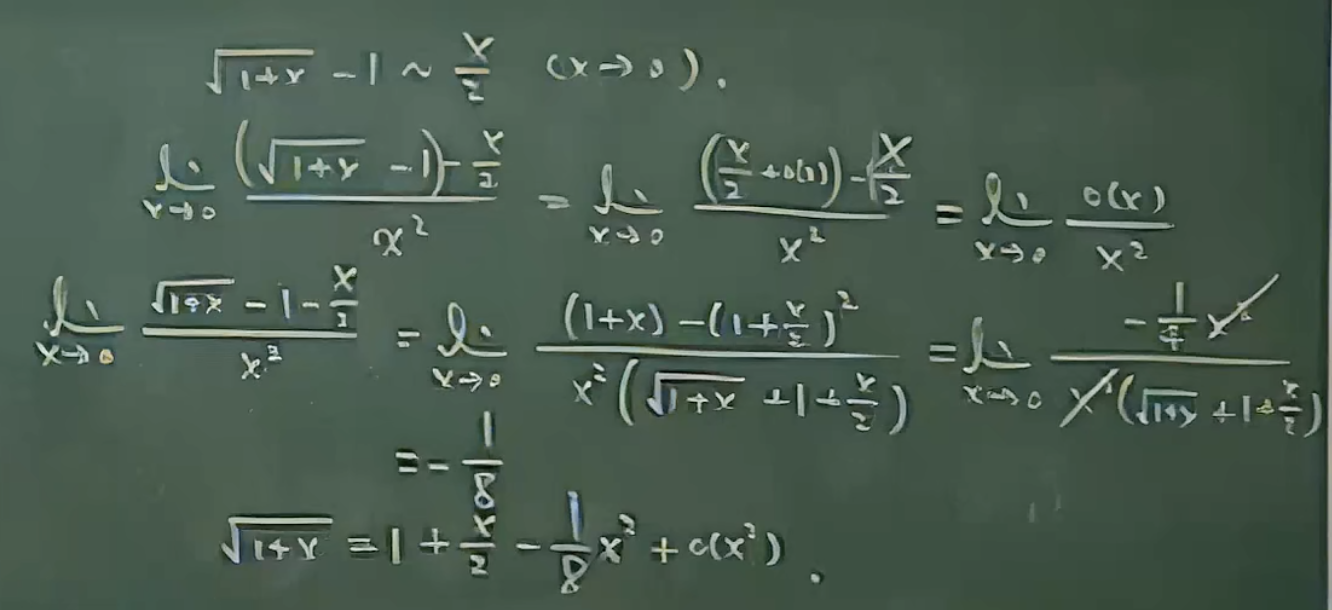 √(1+x) - 1 ~ x/2 (x→0).
lim_{x→0} ((√(1+x) - 1) - x/2)/x² = lim_{x→0} ((x/2 + o(x)) - x/2)/x² = lim_{x→0} o(x)/x²
lim_{x→0} (√(1+x) - 1 - x/2)/x² = lim_{x→0} ((1+x) - (1+x/2)²)/(x²(√(1+x) + 1 + x/2)) = lim_{x→0} (-1/4 x²)/(x²(√(1+x) + 1 + x/2))
= -1/8
√(1+x) = 1 + x/2 - 1/8 x² + o(x²).